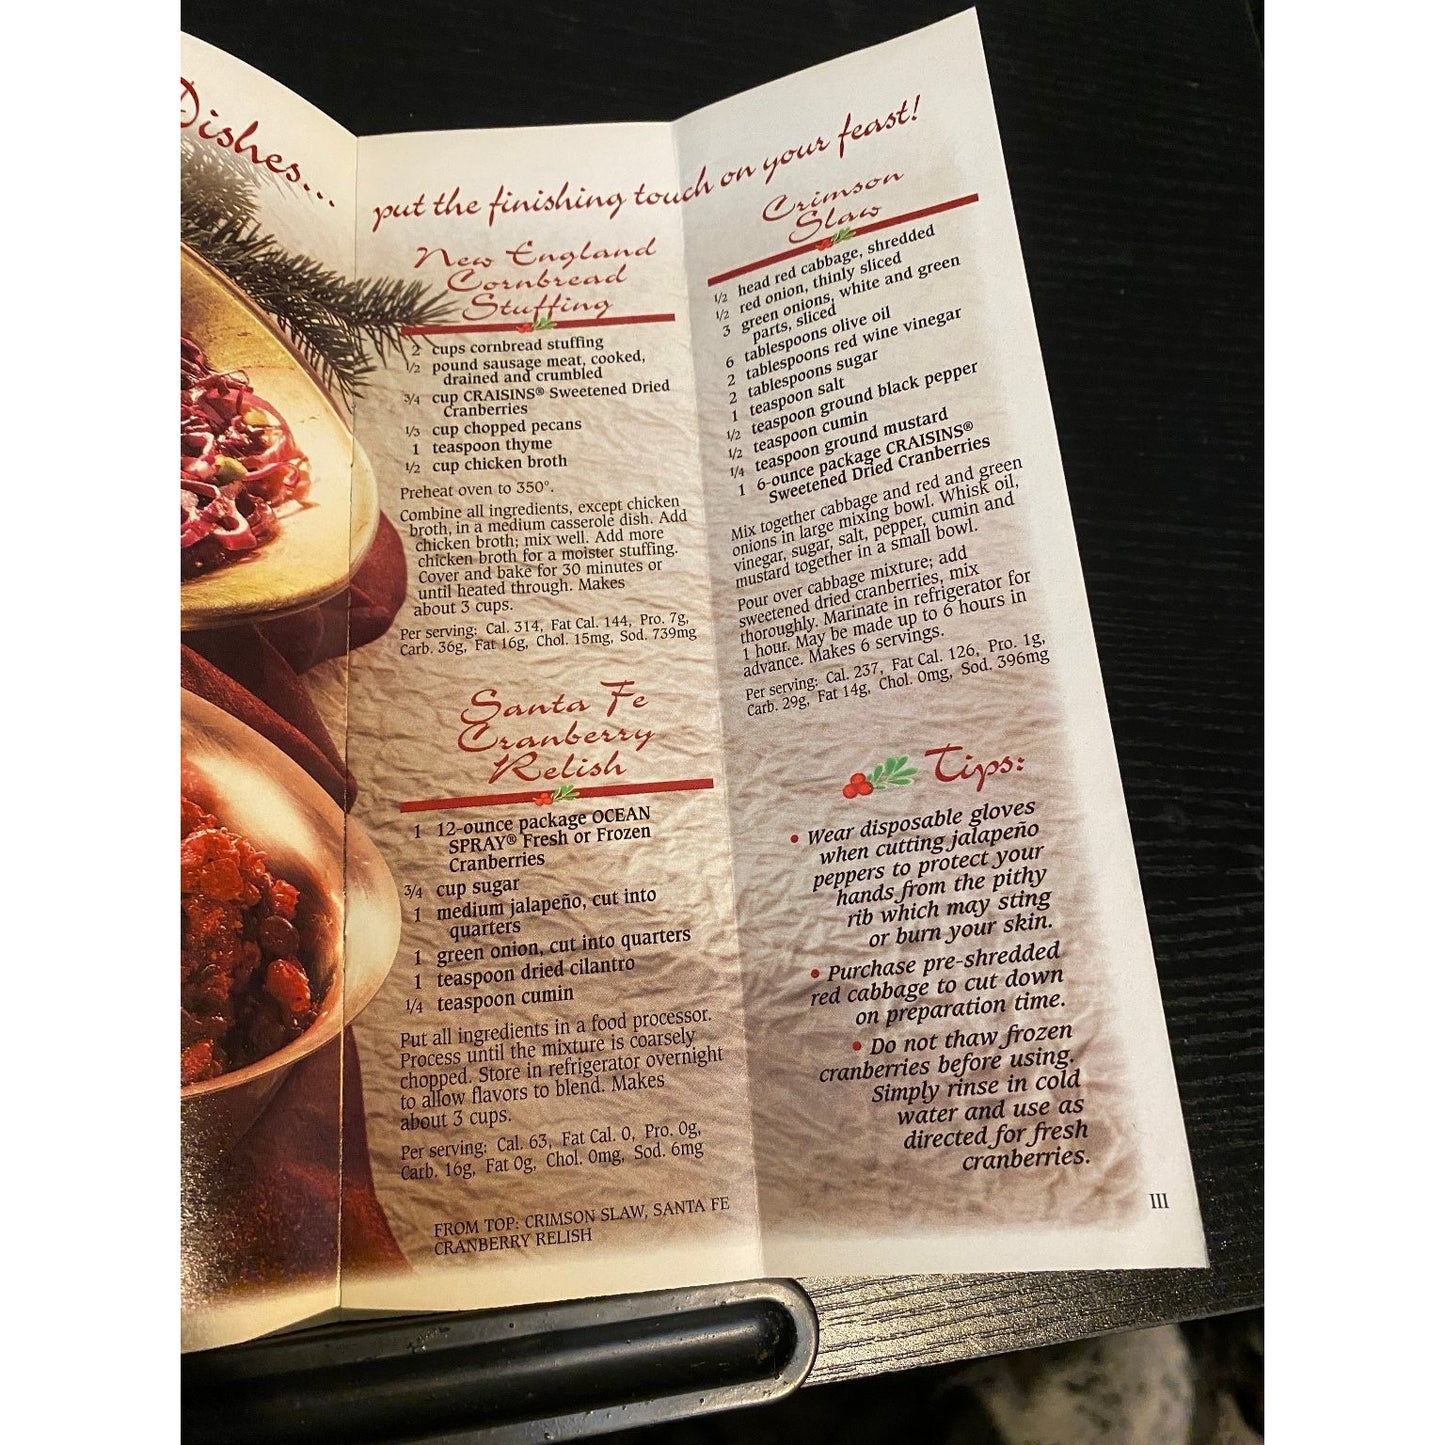 Dishes...
put the finishing touch on your feast!
New England
Cornbread
Stuffing
2 cups cornbread stuffing
1/2 pound sausage meat, cooked,
drained and crumbled
3/4 cup CRAISINS® Sweetened Dried
Cranberries
1/3 cup chopped pecans
1 teaspoon thyme
1/2 cup chicken broth
Preheat oven to 350°.
Combine all ingredients, except chicken
broth, in a medium casserole dish. Add
chicken broth; mix well. Add more
chicken broth for a moister stuffing.
Cover and bake for 30 minutes or
until heated through. Makes
about 3 cups.
Per serving: Cal. 314, Fat Cal. 144, Pro. 7g,
Carb. 36g, Fat 16g, Chol. 15mg, Sod. 739mg
Santa Fe
Cranberry
Relish
1 12-ounce package OCEAN
SPRAY® Fresh or Frozen
Cranberries
3/4 cup sugar
1 medium jalapeño, cut into
quarters
1 green onion, cut into quarters
1 teaspoon dried cilantro
1/4 teaspoon cumin
Put all ingredients in a food processor.
Process until the mixture is coarsely
chopped. Store in refrigerator overnight
to allow flavors to blend. Makes
about 3 cups.
Per serving: Cal. 63, Fat Cal. 0, Pro. 0g,
Carb. 16g, Fat 0g, Chol. 0mg, Sod. 6mg
FROM TOP: CRIMSON SLAW, SANTA FE
CRANBERRY RELISH
Crimson
Slaw
1/2 head red cabbage, shredded
1/2 red onion, thinly sliced
3 green onions, white and green
parts, sliced
6 tablespoons olive oil
2 tablespoons red wine vinegar
2 tablespoons sugar
1 teaspoon salt
1/2 teaspoon ground black pepper
1/2 teaspoon cumin
1/4 teaspoon ground mustard
1 6-ounce package CRAISINS®
Sweetened Dried Cranberries
Mix together cabbage and red and green
onions in large mixing bowl. Whisk oil,
vinegar, sugar, salt, pepper, cumin and
mustard together in a small bowl.
Pour over cabbage mixture; add
sweetened dried cranberries, mix
thoroughly. Marinate in refrigerator for
1 hour. May be made up to 6 hours in
advance. Makes 6 servings.
Per serving: Cal. 237, Fat Cal. 126, Pro. 1g,
Carb. 29g, Fat 14g, Chol. 0mg, Sod. 396mg
Tips:
• Wear disposable gloves
when cutting jalapeño
peppers to protect your
hands from the pithy
rib which may sting
or burn your skin.
• Purchase pre-shredded
red cabbage to cut down
on preparation time.
• Do not thaw frozen
cranberries before using.
Simply rinse in cold
water and use as
directed for fresh
cranberries.
III